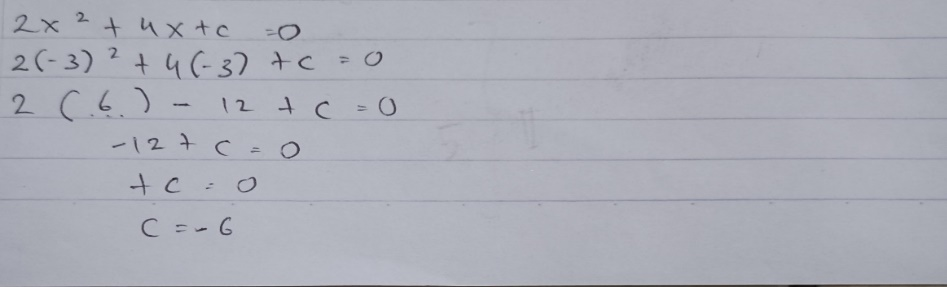 2x² + 4x + c = 0
2(-3)² + 4(-3) + c = 0
2 (6) - 12 + c = 0
-12 + c = 0
+ c = 0
c = - 6